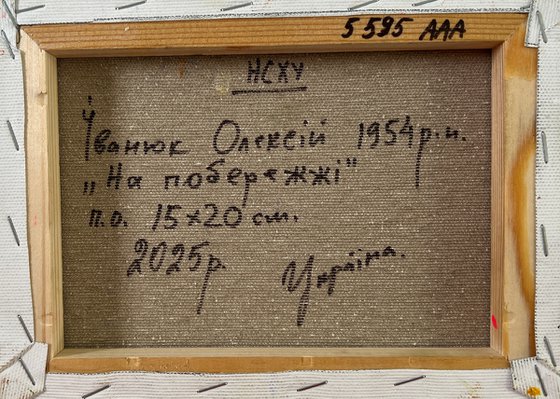 5 595 AAA
НСХУ
Іванюк Олексій 1954р.н.
„На побережжі"
п.о. 15×20 см.
2025р.
Україна.